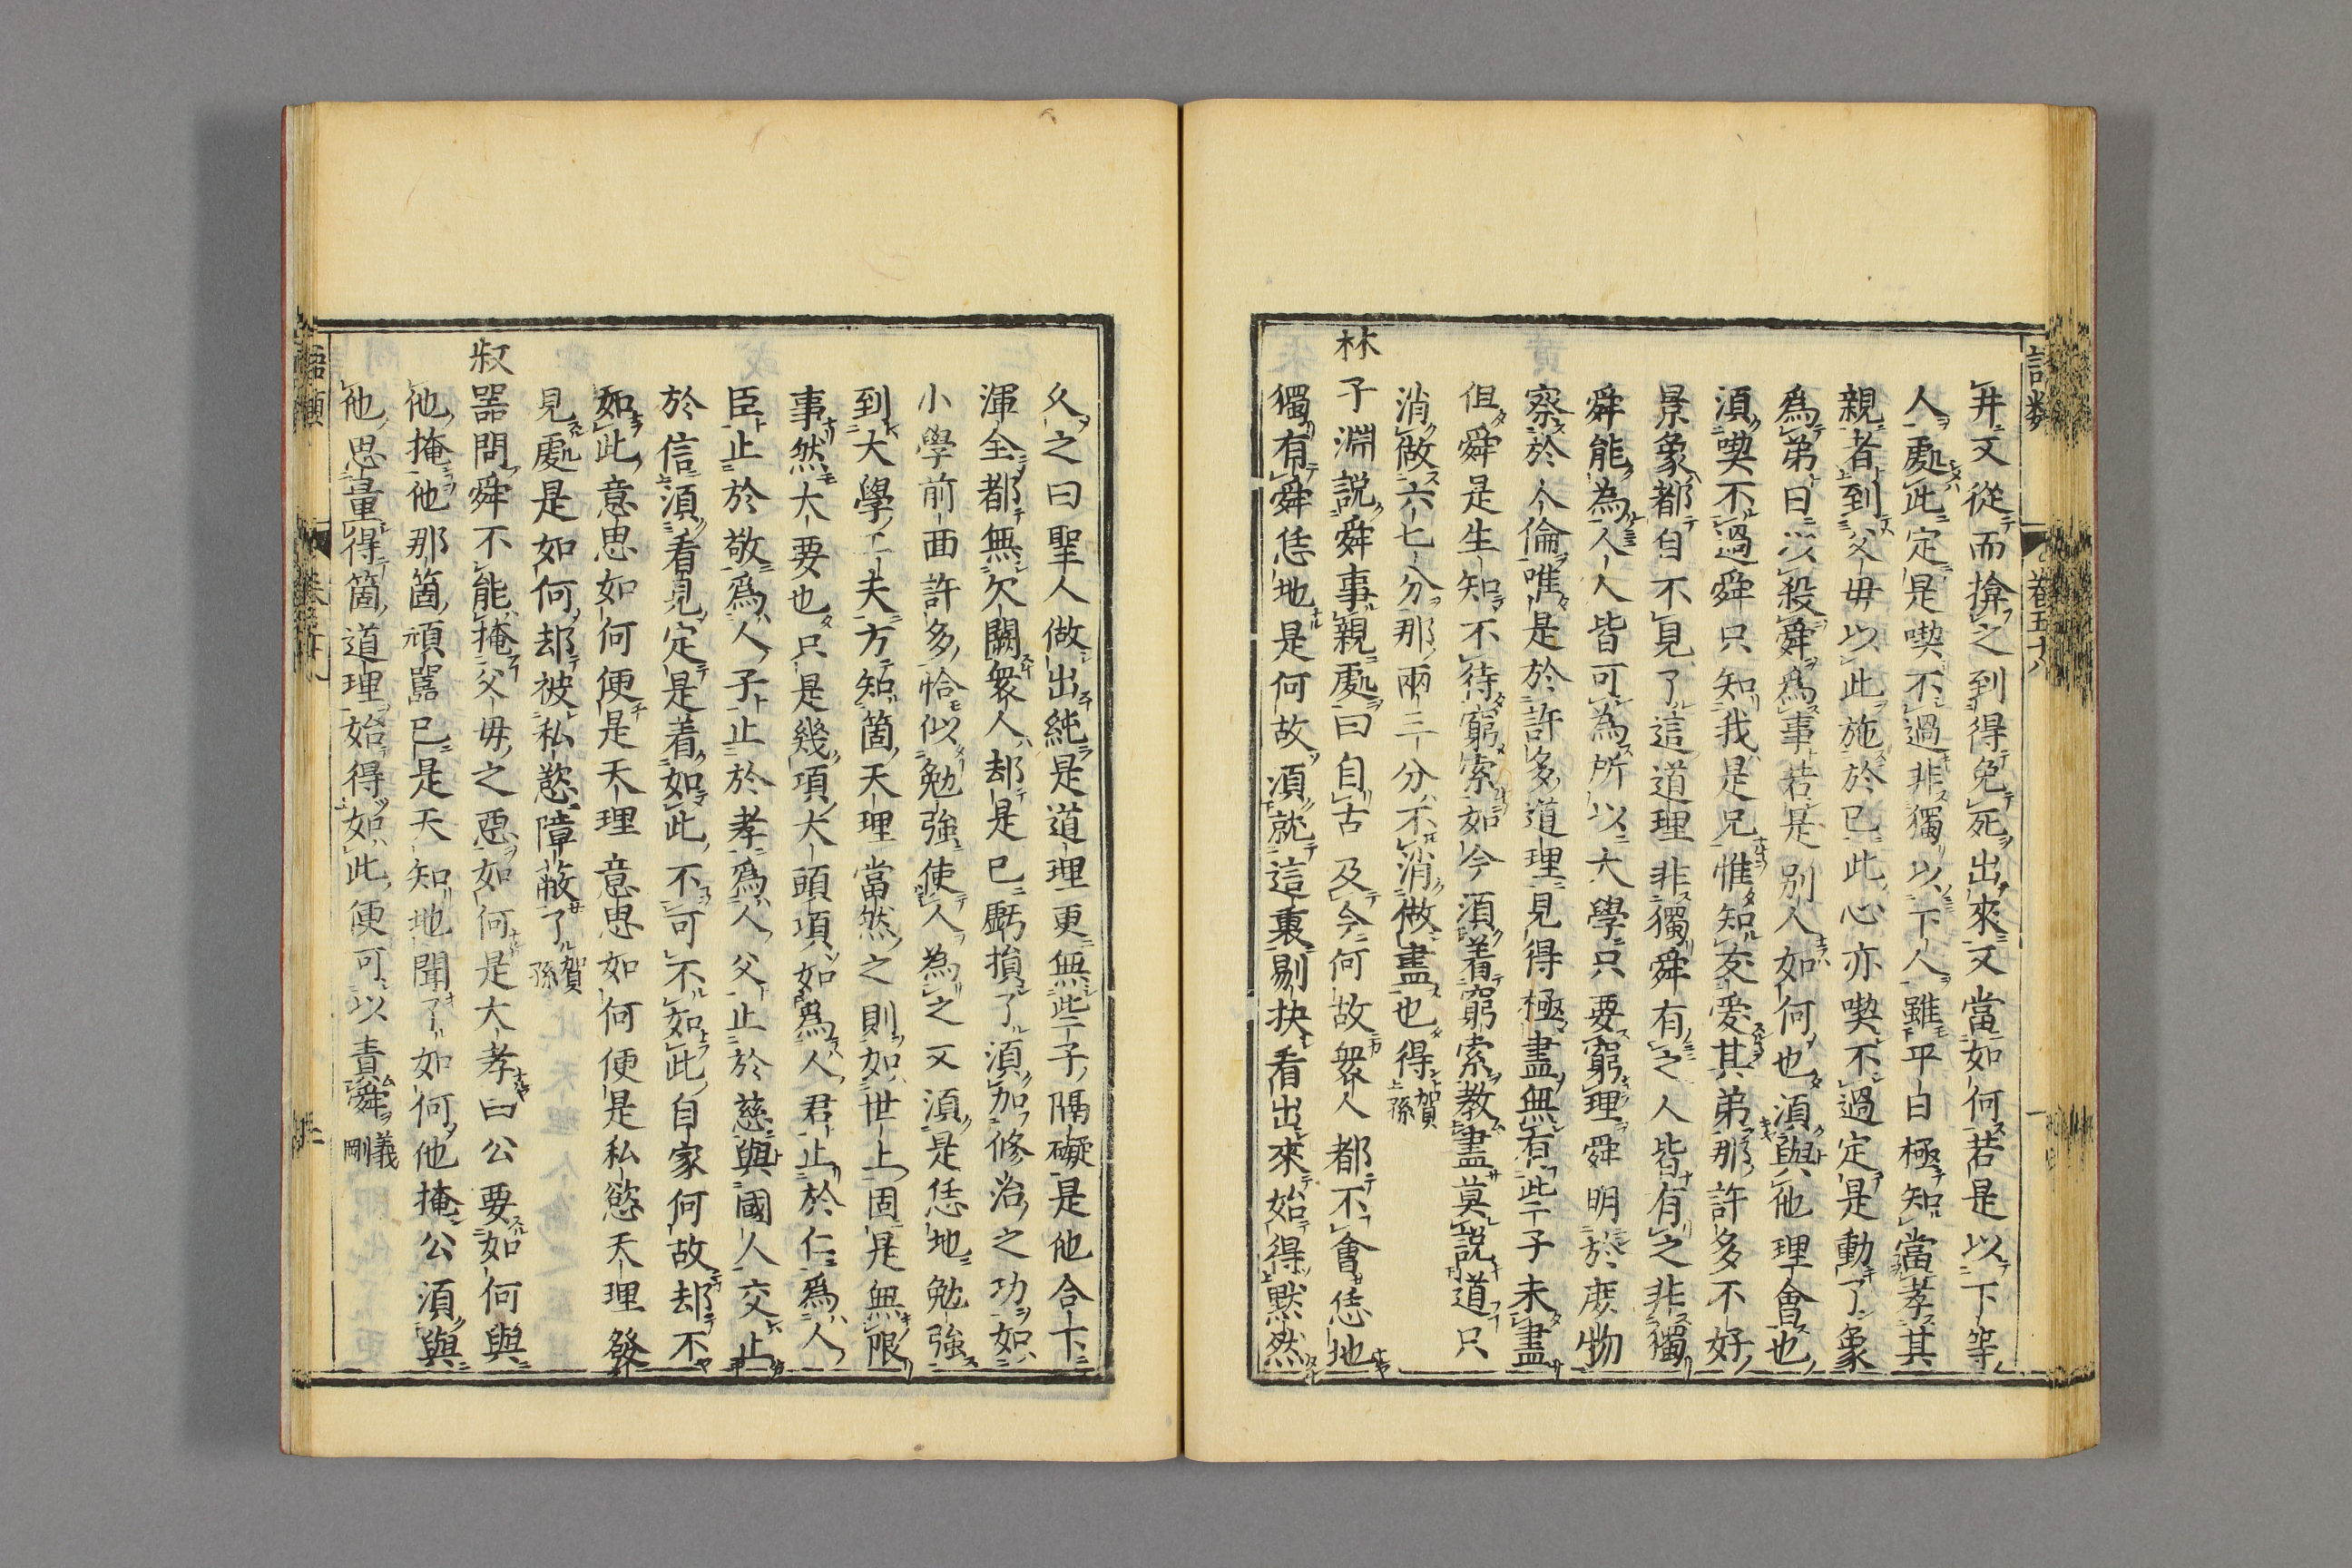 語類 卷五十八 一
井又從而揜之到得免死出來又當如何若是以下等
人處此定是喫不過非獨以下人雖平白極知當孝其
親者到父毋以此施於已此心亦喫不過定是動了象
爲弟日以殺舜爲事若是別人如何也須與他理會也
須喫不過舜只知我是兄惟知友愛其弟那許多不好
景象都自不見了這道理非獨舜有之人皆有之非獨
舜能為人人皆可為所以大學只要窮理舜明於庶物
察於人倫唯是於許多道理見得極盡無有些子未盡
但舜是生知不待窮索如今須着窮索教盡莫說道只
消做六七分那兩三分不消做盡也得賀孫
林子淵說舜事親處曰自古及今何故衆人都不會恁地
獨有舜恁地是何故須就這裏剔抉看出來始得黙然
久之曰聖人做出純是道理更無些子隔礙是他合下
渾全都無欠闕衆人却是已虧損了須加修治之功如
小學前面許多恰似勉強使人為之又須是恁地勉強
到大學工夫方知箇天理當然之則如世上固是無限
事然大要也只是幾項大頭項如爲人君止於仁爲人
臣止於敬爲人子止於孝爲人父止於慈與國人交止
於信須看見定是着如此不可不如此自家何故却不
如此意思如何便是天理意思如何便是私慾天理發
見處是如何却被私慾障蔽了賀孫
叔器問舜不能掩父毋之惡如何是大孝曰公要如何與
他掩他那箇頑嚚已是天知地聞了如何他掩公須與
他思量得箇道理始得如此便可以責舜義剛
語類